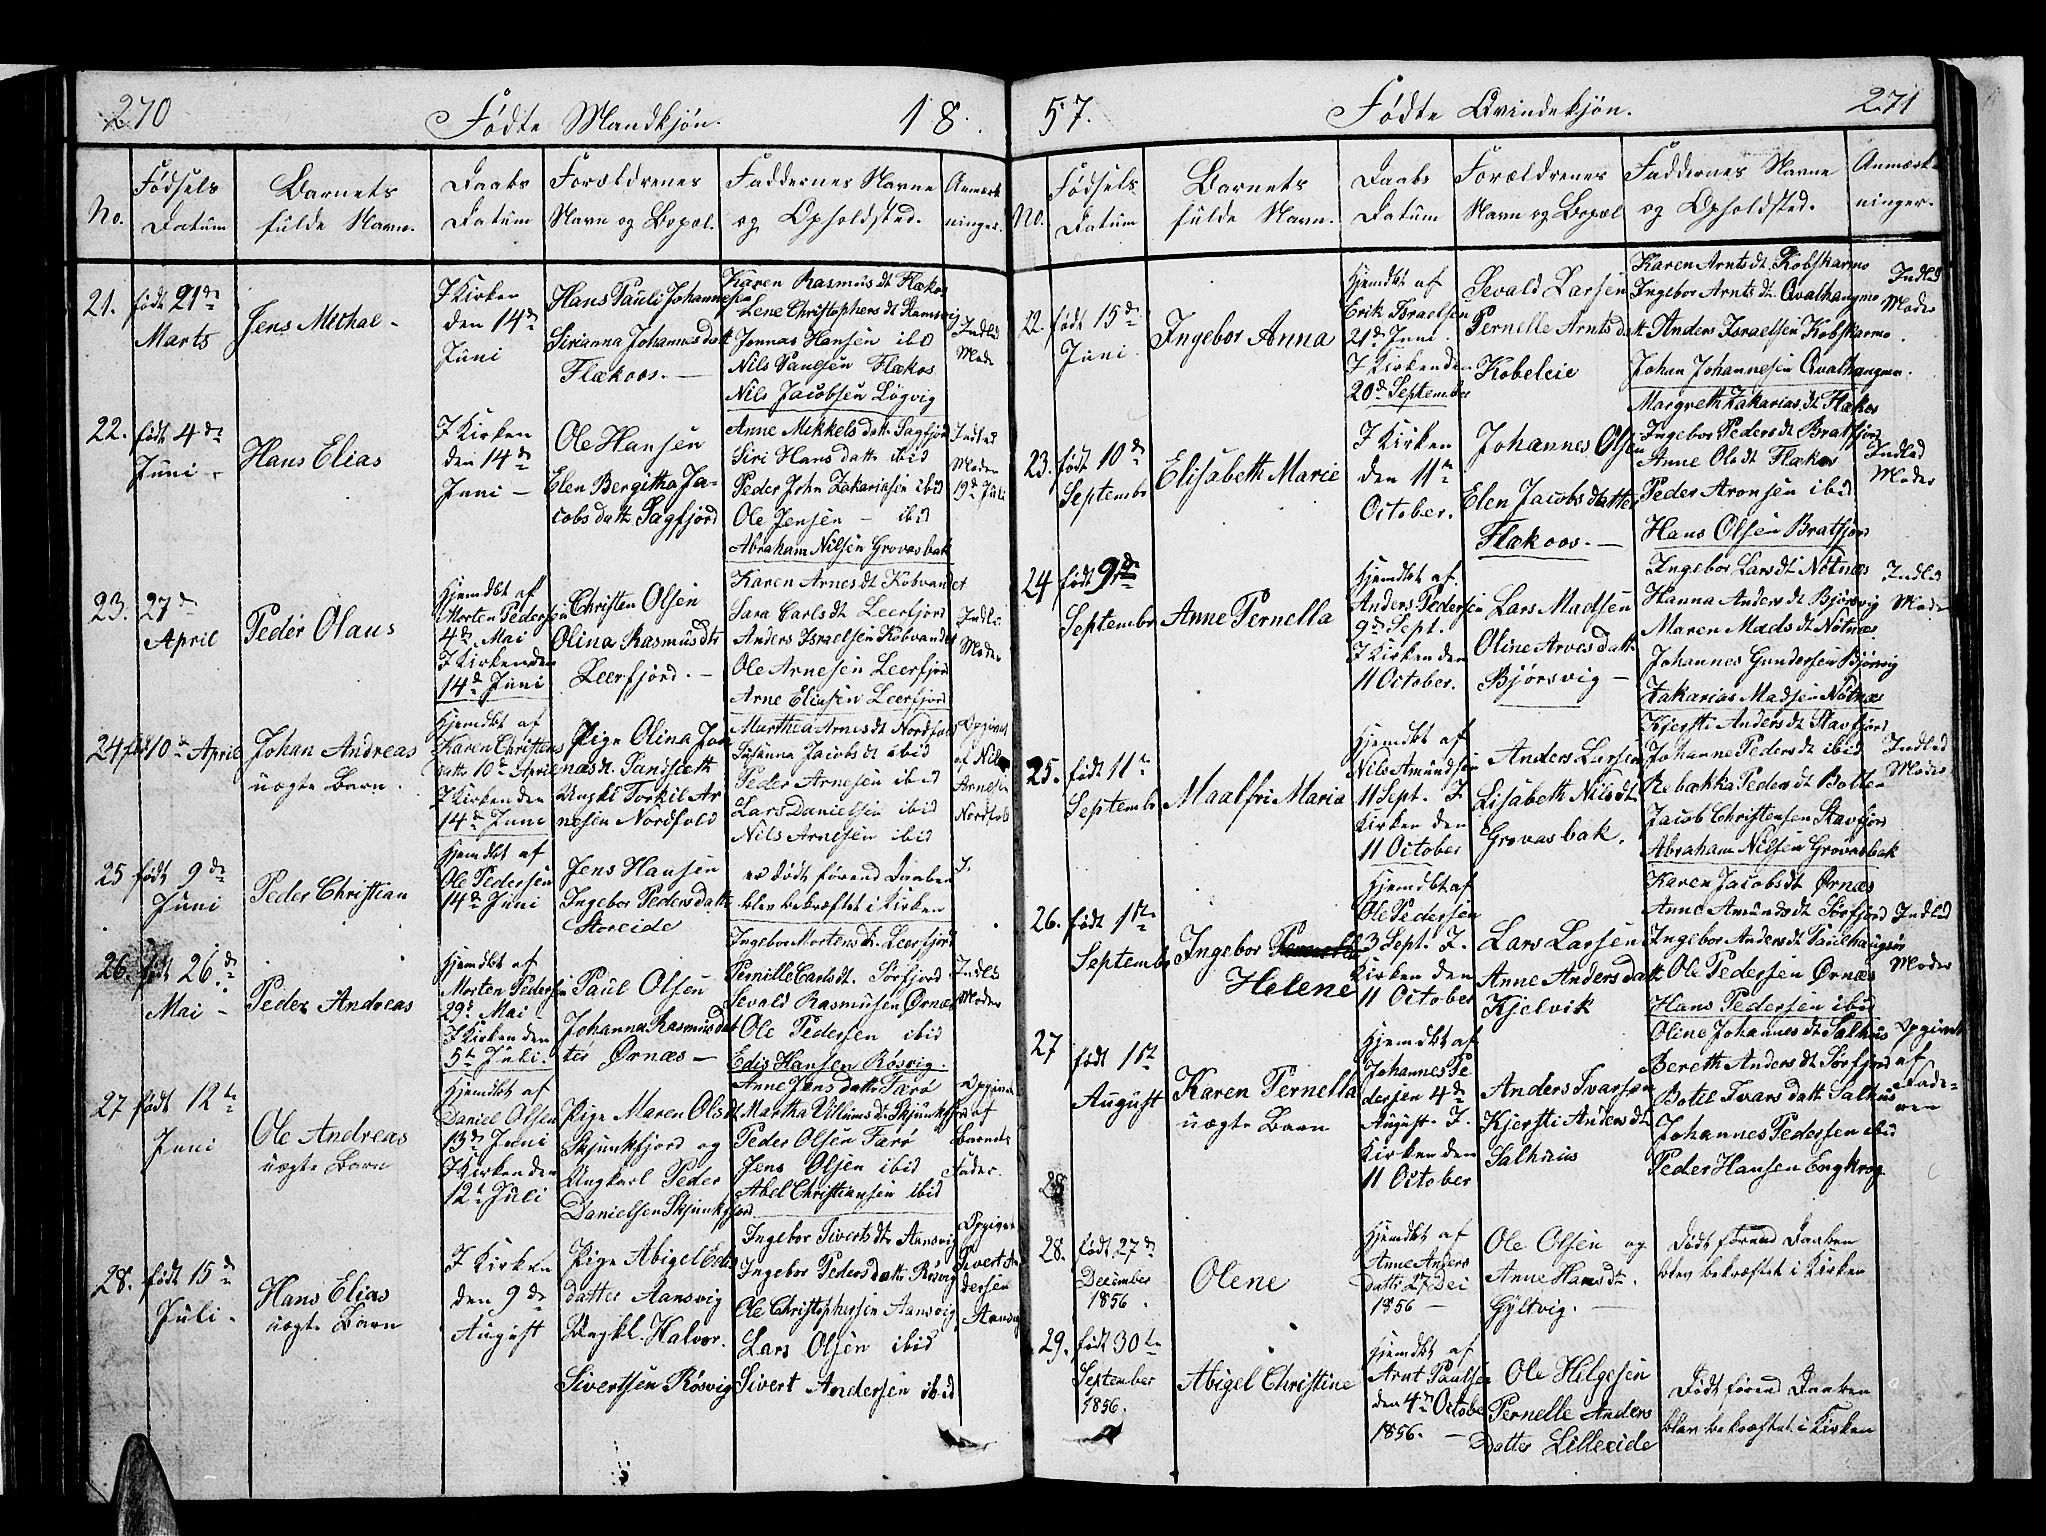 270
Fødte Mandkjøn.
18
No.
Fødsels Datum
Barnets fulde Navn.
Daabs Datum
Forældrenes Navn og Bopæl.
Faddernes Navne og Opholdsted.
Anmærkninger.
21.
født 21de
Marts
Jens Mechal
I Kirken
den 14de
Juni
Hans Pauli Johannesen
Sirianna Johannesdatt
Flækoos.
Karen Rasmusdt Flækos
Lene Christophersdt Stamsvig
Jonnas Hansen ibid
Nils Paulsen Flækos
Nils Jacobsen Løgvig
Indled
Moder
22.
født 4de
Juni
Hans Elias
I Kirken
den 14de
Juni
Ole Hansen
Elen Bergitha Ja-
cobsdatt Sagfjord
Anne Mekkelsdatt Sagfjord
Siri Hansdatt ibid
Peder John Zakariasen ibid
Ole Jensen ibid
Abraham Nilsen Grovasbak
Indled
Moder
19de Juli
23.
27de
April
Peder Olaus
Hjemdbt af
Morten Pedersen
4de Mai
I Kirken den
14de Juni
Christen Olsen
Olina Rasmusdtr
Leerfjord.
Karen Arnesdt Kobvandet
Sara Carlsdt Leerfjord
Anders Israelsen Kobvandet
Ole Arnesen Leerfjord
Arne Eliasen Leerfjord
Indled
Moder
24
født 10de April
Johan Andreas
uægte Barn.
Hjemdbt af
Karen Christens
datt 10de April
I Kirken den
14de Juni
Pige Olina Jon
nasdt. Sandsæth
Ungkl Torkil Ar
nesen Nordfold
Marthea Arnesdt Nordfold
Susanna Jacobsdt ibid
Peder Arnesen ibid
Lars Danielsen ibid
Nils Arnesen ibid
Opgivet
af Nils
Arnesen
Nordfold
25
født 9de
Juni
Peder Christian
Hjemdbt af
Ole Pedersen
14de Juni
Jens Hansen
Ingebor Pedersdatt
Storeide
er død førend Daaben
blev bekræftet i Kirken
26.
født 26de
Mai
Peder Andreas
Hjemdbt af
Morten Pedersen
29de Mai
I Kirken den
5te Juli.
Paul Olsen
Johanna Rasmusdat
ter Ørnæs
Ingebor Mortensdt. Leerfjord
Pernille Carlsdt. Sørfjord
Sevald Rasmusen Ørnæs
Ole Pedersen ibid
Edis Hansen Røsvig.
Indled
Moder
27
født 12te
Juni
Ole Andreas
uægte Barn
Hjemdbt af
Daniel Olsen
13de Juni
I Kirken den
12te Juli
Pige Maren Olsdt
Skjunkfjord og
Ungkarl Peder
Danielsen Skjunkfjord
Anne Jensdatt Færø
Martha Villumsdt Skjunkfjord
Peder Olsen Færø
Jens Olsen ibid
Abel Christiansen ibid
Opgivet
af
Barnets
Fader.
28.
født 15de
Juli.
Hans Elias
uægte Barn
I Kirken
den 9de
August
Pige Abigel Edis
datter Aansvig
Ungkl. Halvor
Sivertsen Røsvig
Ingebor Sivertsdt Aansvig
Ingebor Pedersdatt Røsvig
Ole Christophersen Aansvig
Lars Olsen ibid
Sivert Andersen ibid
Opgiver
Sivert An
dersen
Aansvig
57.
Fødte Qvindekjøn.
271
No.
Fødsels Datum
Barnets fulde Navn.
Daabs Datum
Forældrenes Navn og Bopæl
Faddernes Navne og Opholdsted.
Anmærkninger.
22.
født 15de
Juni.
Ingebor Anna
Hjemdbt af
Erik Israelsen
21de Juni.
I Kirken den
20de September
Sevald Larsen
Pernelle Arntsdatt
Kobeleie
Karen Arntsdt. Kobskarmo
Ingebor Arntsdt. Qvalhangmo
Anders Israelsen Kobskarmo
Johan Johannesen Qvalhangmo.
Margreth Zakariasdt Flækos
Indled
Moder
23.
født 10de
Septembr
Elisabeth Marie
I Kirken
den 11te
October.
Johannes Olsen
Elen Jacobsdatter
Flækoos.
Ingebor Pedersdt Bratfjord
Anne Olsdt Flækos
Peder Aronsen ibid.
Hans Olsen Bratfjord
Indled
Moder
24
født 9de
Septembr
Anne Pernella
Hjemdbt af
Anders Pedersen
9de Sept.
I Kirken den
11 October.
Lars Madsen
Oline Arvesdatt
Bjørsvig
Ingebor Larsdt Nøtnæs
Hanna Andersdt Bjørsvig
Maren Madsdt Nøtnæs
Johannes Gundersen Bjørsvig
Zakarias Madsen Nøtnæs
Indled
Moder
25.
født 11te
Septembr
Maalfri Maria
Hjemdbt af
Nils Amundsen
11 Sept. I
Kirken den
11 October
Anders Larsen
Lisabeth Nilsdt
Grovasbak.
Kjersti Andersdt Stavfjord
Johanne Pedersdt ibid
Rebækka Pedersdt Botte-
Jacob Christensen Stavfjord
Abraham Nilsen Grovasbak
Indled
Moder
26.
født 1ste
Septembr
Ingebor Pernella
Helene
Hjemdbt af
Ole Pedersen
3 Sept. I.
Kirken den
11 October
Lars Larsen
Anne Andersdatt
Kjelvik
Karen Jacobsdt Ørnæs
Anne Amundsdt Sørfjord
Ingebor Andersdt
Ole Pedersen Ørnæs
Hans Pedersen ibid
Indled
Moder
27
født 1ste
August
Karen Pernella
uægte Barn
Hjemdbt af
Johannes Pe
dersen 4de
August. I.
Kirken den
11 October
Anders Ivarsen
Kjersti Andersdt
Salhuus
Oline Johannesdt Salhus
Bereth Andersdt Sørfjord
Botel Ivarsdatt Salhus
Johannes Pedersen ibid
Peder Hansen Engkrog
Opgivet
af
Fade-
ren
28
28.
født 27de
December
1856.
Olene
Hjemdbt af
Anne Anders
datt 27 Dec
1856
Ole Olsen og
Anne Hansdt.
Gyltvig.
Død førend Daaben
blev bekræftet i Kirken
29.
født 30te
September
1856.
Abigel Christine
Hjemdbt af
Arnt Paulsen
den 4de Octobe
1856.
Ole Helgesen
Pernelle Anders
Datter Lilleeide
Død førend Daaben
blev bekræftet i Kirken